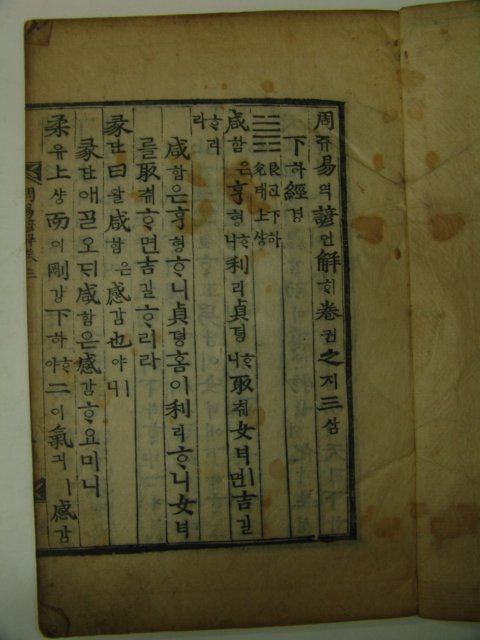 周쥬易역諺언解ᄒᆡ卷권之지三삼
下하經경
䷞ 艮간下하 兌태上샹
咸함은亨형ᄒᆞ니利리貞뎡ᄒᆞ니取ᄎᆔ女녀ㅣ면吉길
ᄒᆞ리라
咸함은亨형ᄒᆞ니貞뎡홈이利리ᄒᆞ니女녀
를取ᄎᆔᄒᆞ면吉길ᄒᆞ리라
彖단曰왈咸함은感감也야ㅣ니
彖단애ᄀᆞᆯ오ᄃᆡ咸함은感감홈이니
柔유上샹而이剛강下하ᄒᆞ야二이氣긔ㅣ感감
周易諺解卷三